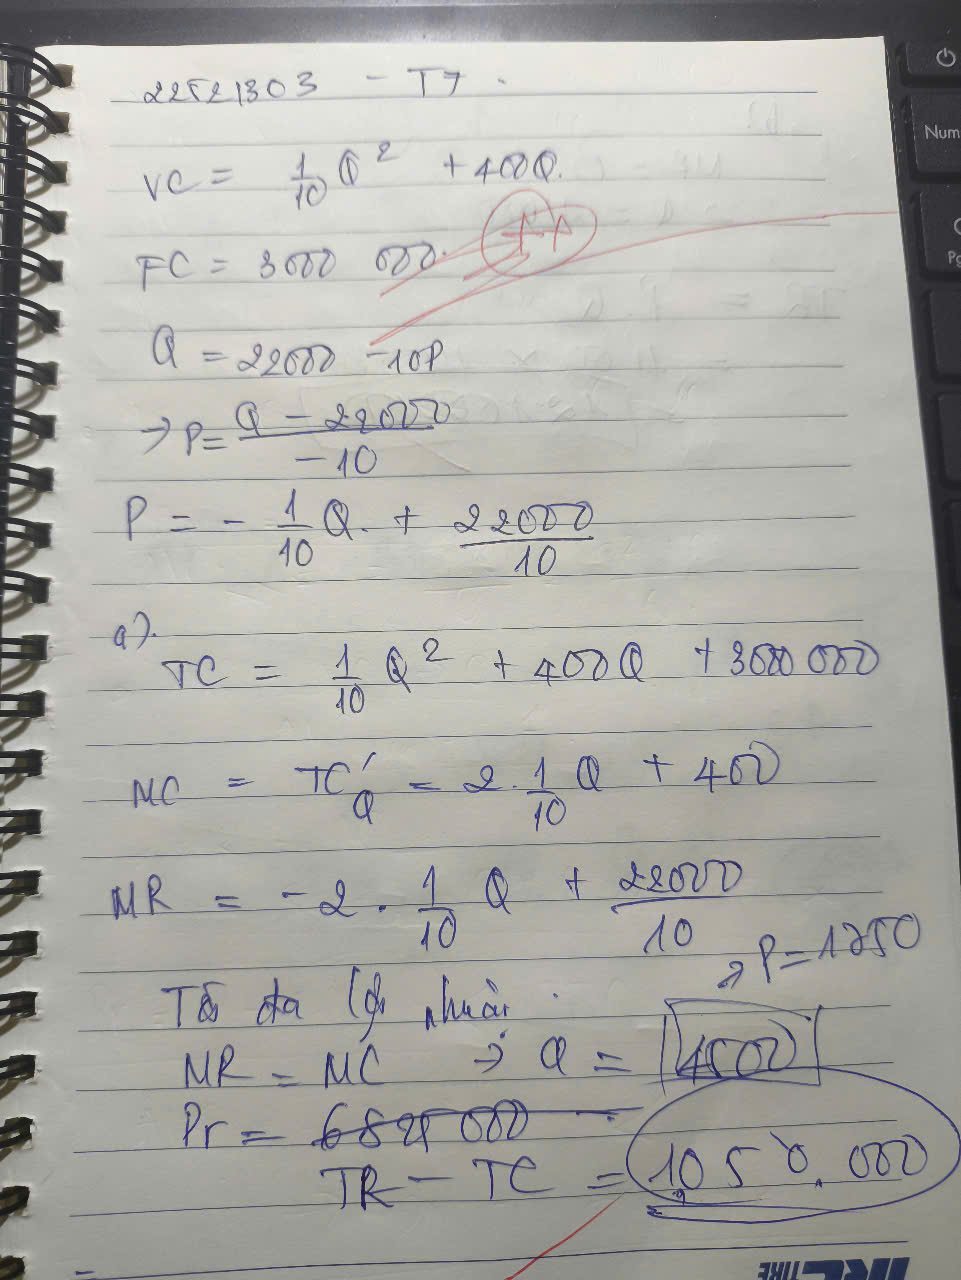 22521303 - T7.
VC = 1/10 Q² + 400Q.
FC = 3000 000.
Q = 22000 - 10P
→ P = (Q - 22000)/-10
P = - 1/10 Q + 22000/10
a).
TC = 1/10 Q² + 400Q + 3000 000
MC = TC'Q = 2. 1/10 Q + 400
MR = -2. 1/10 Q + 22000/10
→ P = 1750
Tối đa lợi nhuận:
MR = MC → Q = 4500
Pr =
TR - TC = 1050.000